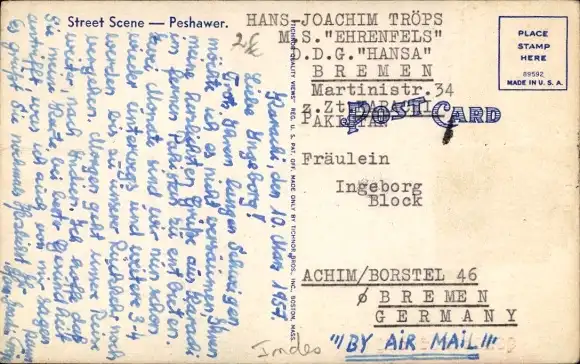 Street Scene — Peshawer.
Karachi, den 10. März 1957
Liebe Ingeborg!
Trotz Ihrem langen Schweigen
möchte ich es nicht versäumen, Ihnen
meine herzlichsten Grüße aus Karachi
im fernen Pakistan zu entbieten.
Monate sind wir nun schon
wieder unterwegs und weitere 3-4
werden bis zu unserer Rückkehr noch
vergehen. Morgen geht unsere Reise
weiter, nach Indien. Ich hoffe, daß
Sie meine Karte bei bester Gesundheit
antrifft, was ich auch von mir sagen
Es grüßt Sie nochmals herzlichst Ihr
TICHNOR QUALITY VIEWS, REG. U. S. PAT. OFF. MADE ONLY BY TICHNOR BROS., INC., BOSTON, MASS.
HANS-JOACHIM TRÖPS
M.S."EHRENFELS"
D.D.G."HANSA"
BREMEN
Martinistr.34
z.Zt.KARACHI
PAKISTAN
POST CARD
PLACE
STAMP
HERE
89592
MADE IN U. S. A.
Fräulein
Ingeborg
Block
ACHIM/BORSTEL 46
BREMEN
GERMANY
"BY AIR MAIL"